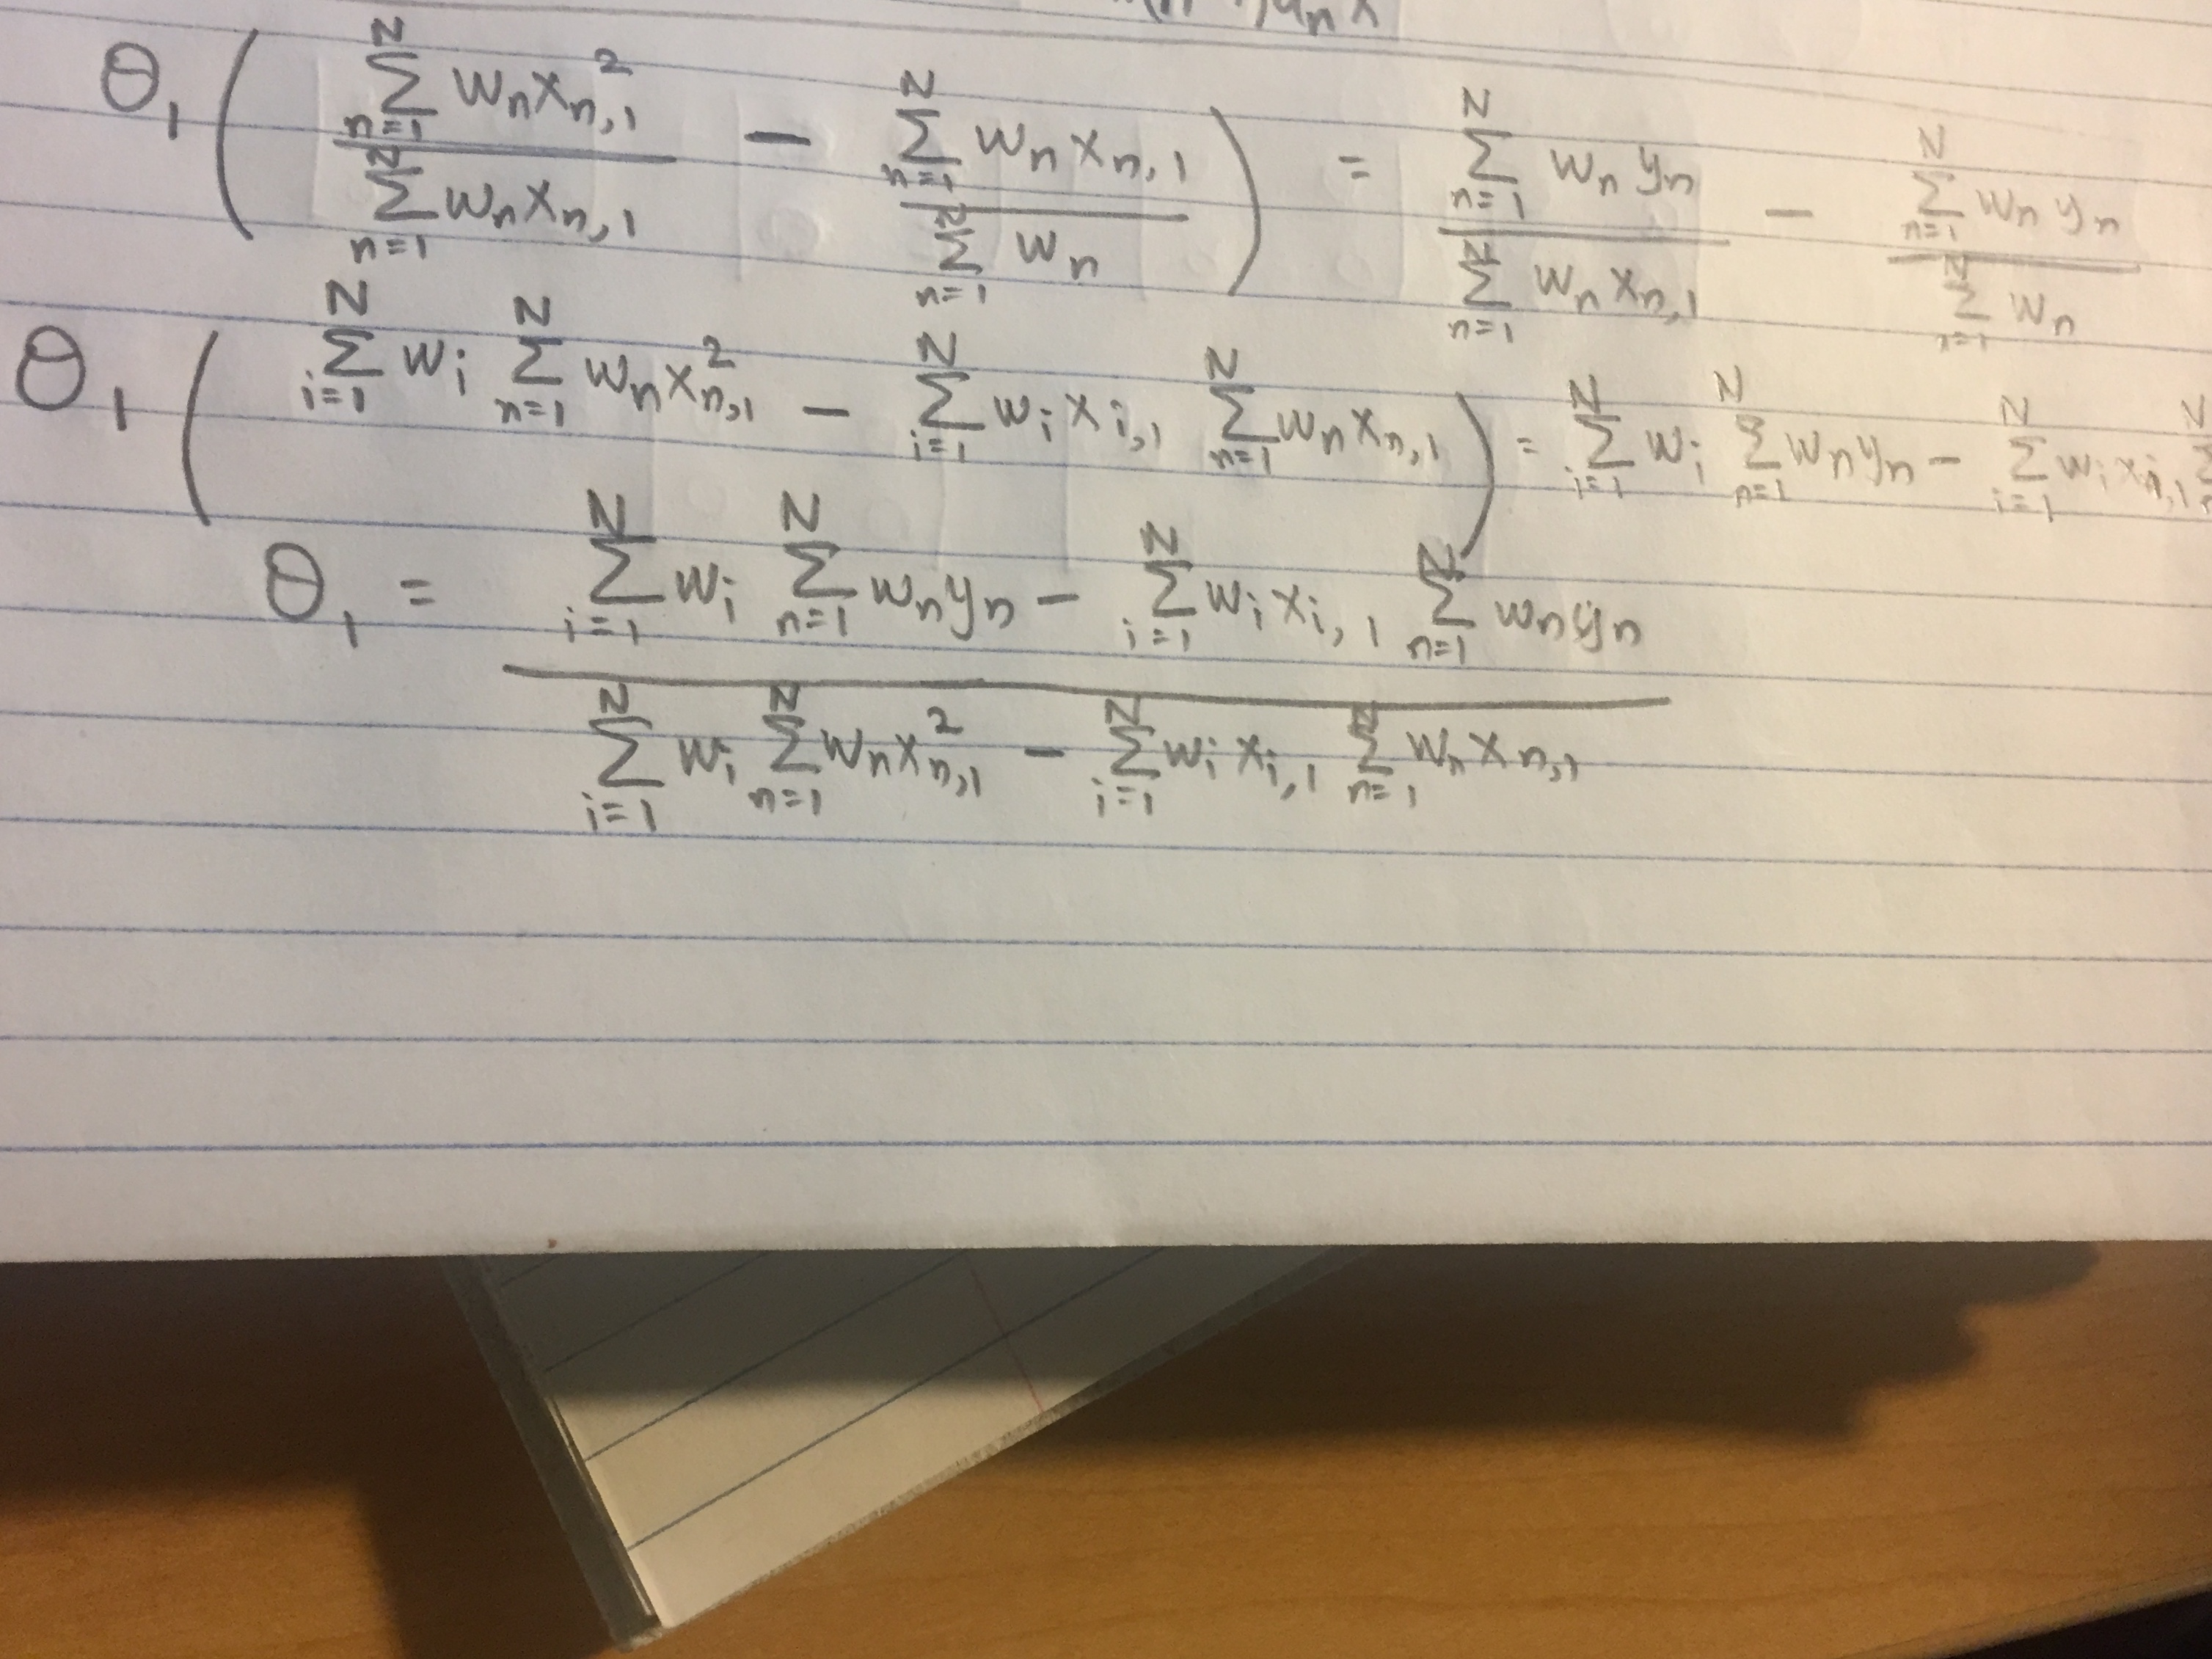 θ₁ ( (∑_{n=1}^{N} w_n x_{n,1}^2) / (∑_{n=1}^{N} w_n x_{n,1}) − (∑_{n=1}^{N} w_n x_{n,1}) / (∑_{n=1}^{N} w_n) ) = (∑_{n=1}^{N} w_n y_n) / (∑_{n=1}^{N} w_n x_{n,1}) − (∑_{n=1}^{N} w_n y_n) / (∑_{n=1}^{N} w_n)
θ₁ ( ∑_{i=1}^{N} w_i ∑_{n=1}^{N} w_n x_{n,1}^2 − ∑_{i=1}^{N} w_i x_{i,1} ∑_{n=1}^{N} w_n x_{n,1} ) = ∑_{i=1}^{N} w_i ∑_{n=1}^{N} w_n y_n − ∑_{i=1}^{N} w_i x_{i,1}
θ₁ = (∑_{i=1}^{N} w_i ∑_{n=1}^{N} w_n y_n − ∑_{i=1}^{N} w_i x_{i,1} ∑_{n=1}^{N} w_n y_n) / (∑_{i=1}^{N} w_i ∑_{n=1}^{N} w_n x_{n,1}^2 − ∑_{i=1}^{N} w_i x_{i,1} ∑_{n=1}^{N} w_n x_{n,1})